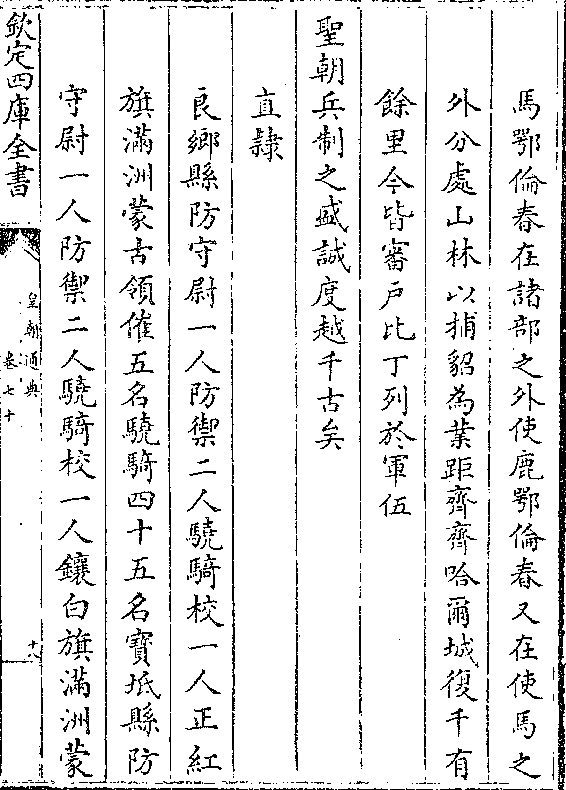 馬鄂倫春在諸部之外使鹿鄂倫春又在使馬之
外分處山林以捕貂為業距齊齊哈爾城復千有
餘里今皆審戶比丁列於軍伍
聖朝兵制之盛誠度越千古矣
直隷
良鄉縣防守尉一人防禦二人驍騎校一人正紅
旗滿洲蒙古領催五名驍騎四十五名寶坻縣防
守尉一人防禦二人驍騎校一人鑲白旗滿洲蒙
欽定四庫全書
皇朝通典
卷七十
十八